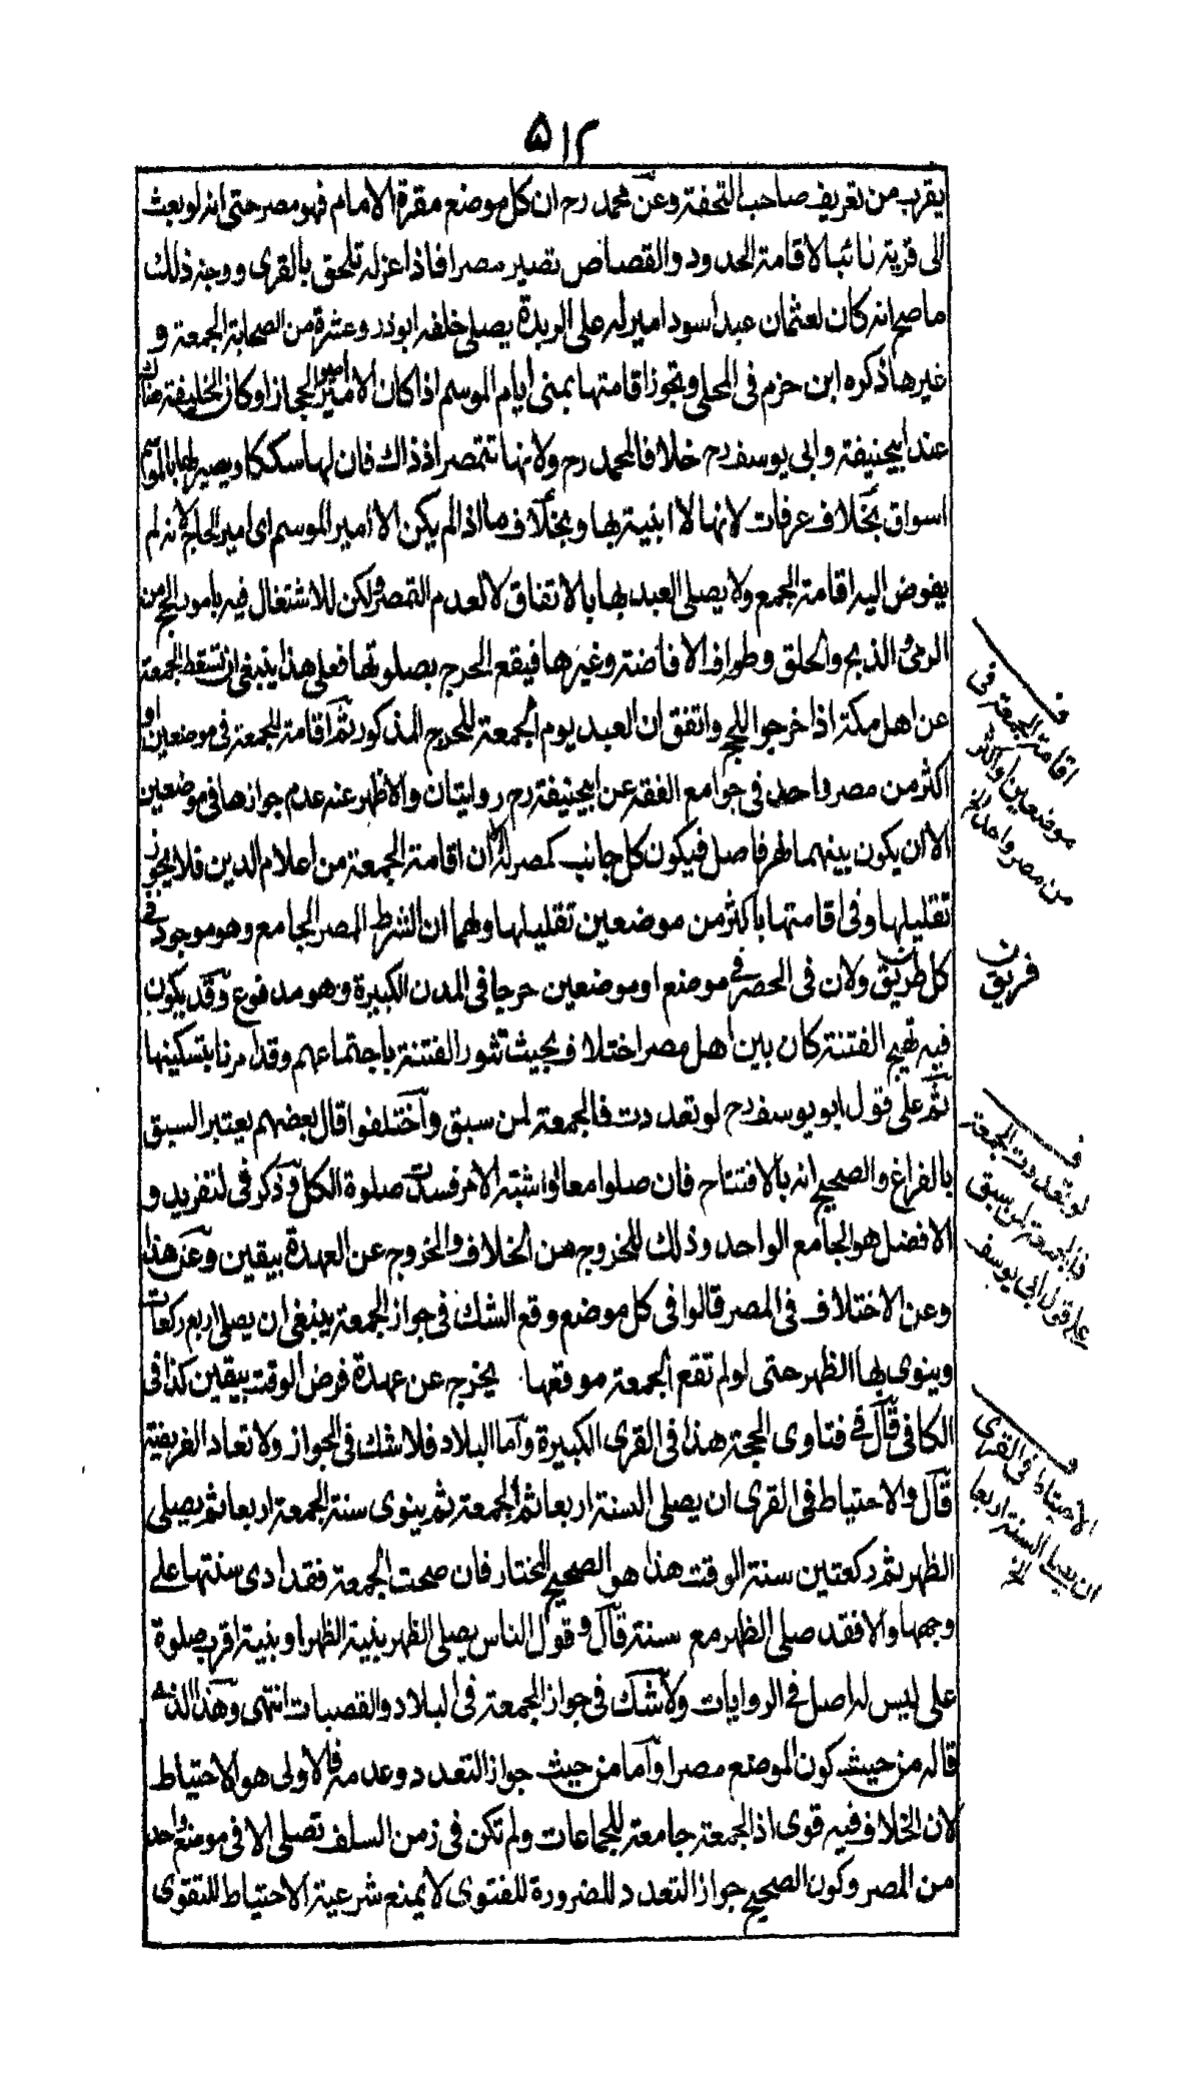 ۵۱۲
يقرب من تعريف صاحب التحفة وعن محمد رح ان كل موضع مقرة الامام فهو مصر حتى انه لو بعث
الى قرية نائبا لاقامة الحدود والقصاص تصير مصرا فاذا عزله تلحق بالقرى ووجه ذلك
ما صح انه كان لعثمان عبد اسود امير له على الربذة يصلى خلفه ابوذر وعشرة من الصحابة الجمعة و
غيرها ذكره ابن حزم فى المحلى وتجوز اقامتها بمنى ايام الموسم اذا كان الامير امير الحجاز او كان الخليفة هناك
عند ابيحنيفة وابى يوسف رح خلافا لمحمد رح ولانها تتمصر اذ ذاك فان لها سككا ويصير لها بالموسم
اسواق بخلاف عرفات لانها لا ابنية بها وبخلاف ما اذا لم يكن الا امير الموسم اى امير الحاج لانه لم
يفوض اليه اقامة الجمع ولا يصلى العيد بها بالاتفاق لا لعدم التمصر ولكن للاشتغال فيه بامور الحج من
الرمى والذبح والحلق وطواف الافاضة وغيرها فيقع الحرج بصلوتها فعلى هذا ينبغى ان تسقط الجمعة
عن اهل مكة اذا خرجوا للحج واتفق ان العيد يوم الجمعة للحرج المذكور ثم اقامة الجمعة فى موضعين او
اكثر من مصر واحد فى جوامع الفقه عن ابيحنيفة رح روايتان والاظهر عنه عدم جوازها فى موضعين
الا ان يكون بينهما نهر فاصل فيكون كل جانب كمصر له ان اقامة الجمعة من اعلام الدين فلا يجوز
تقليلها وفى اقامتها باكثر من موضعين تقليلها ولهما ان الشرط المصر الجامع وهو موجود فى
كل طريق ولان فى الحصر فى موضع او موضعين حرجا فى المدن الكبيرة وهو مدفوع وقد يكون
فيه تهيج الفتنة كان بين اهل مصر اختلاف بحيث تثور الفتنة باجتماعهم وقد امرنا بتسكينها
ثم على قول ابو يوسف رح لو تعددت فالجمعة لمن سبق واختلفوا قال بعضهم يعتبر السبق
بالفراغ والصحيح انه بالافتتاح فان صلوا معا او اشتبه الامر فسدت صلوة الكل وذكر فى لتفريد و
الافضل هو الجامع الواحد وذلك للخروج من الخلاف والخروج عن العهدة بيقين وعن هذا
وعن الاختلاف فى المصر قالوا فى كل موضع وقع الشك فى جواز الجمعة ينبغى ان يصلى اربع ركعات
وينوى بها الظهر حتى لو لم تقع الجمعة موقعها يخرج عن عهدة فرض الوقت بيقين كذا فى
الكافى قال فى فتاوى الحجة هذا فى القرى الكبيرة واما البلاد فلا شك فى الجواز ولا تعاد الفريضة
قال والاحتياط فى القرى ان يصلى السنة اربعا ثم الجمعة ثم ينوى سنة الجمعة اربعا ثم يصلى
الظهر ثم ركعتين سنة الوقت هذا هو الصحيح المختار فان صحت الجمعة فقد ادى سنتها على
وجهها والا فقد صلى الظهر مع سنته قال وقول الناس يصلى الظهر بنية الظهر او بنية اقرب صلوة
على ليس له اصل فى الروايات ولا شك فى جواز الجمعة فى البلاد والقصبات انتهى وهذا الذى
قاله من حيث كون الموضع مصرا واما من حيث جواز التعدد وعدمه فالاولى هو الاحتياط
لان الخلاف فيه قوى اذ الجمعة جامعة للجماعات ولم تكن فى زمن السلف تصلى الا فى موضع واحد
من المصر وكون الصحيح جواز التعدد للضرورة للفتوى لا يمنع شرعية الاحتياط للتقوى
ف
اقامة الجمعة فى
موضعين او اكثر
من مصر واحد الخ
فريق
ف
لو تعددت الجمعة
فالجمعة لمن سبق
على قول ابى يوسف
ف
الاحتياط فى القرى
ان يصلى السنة اربعا
الخ